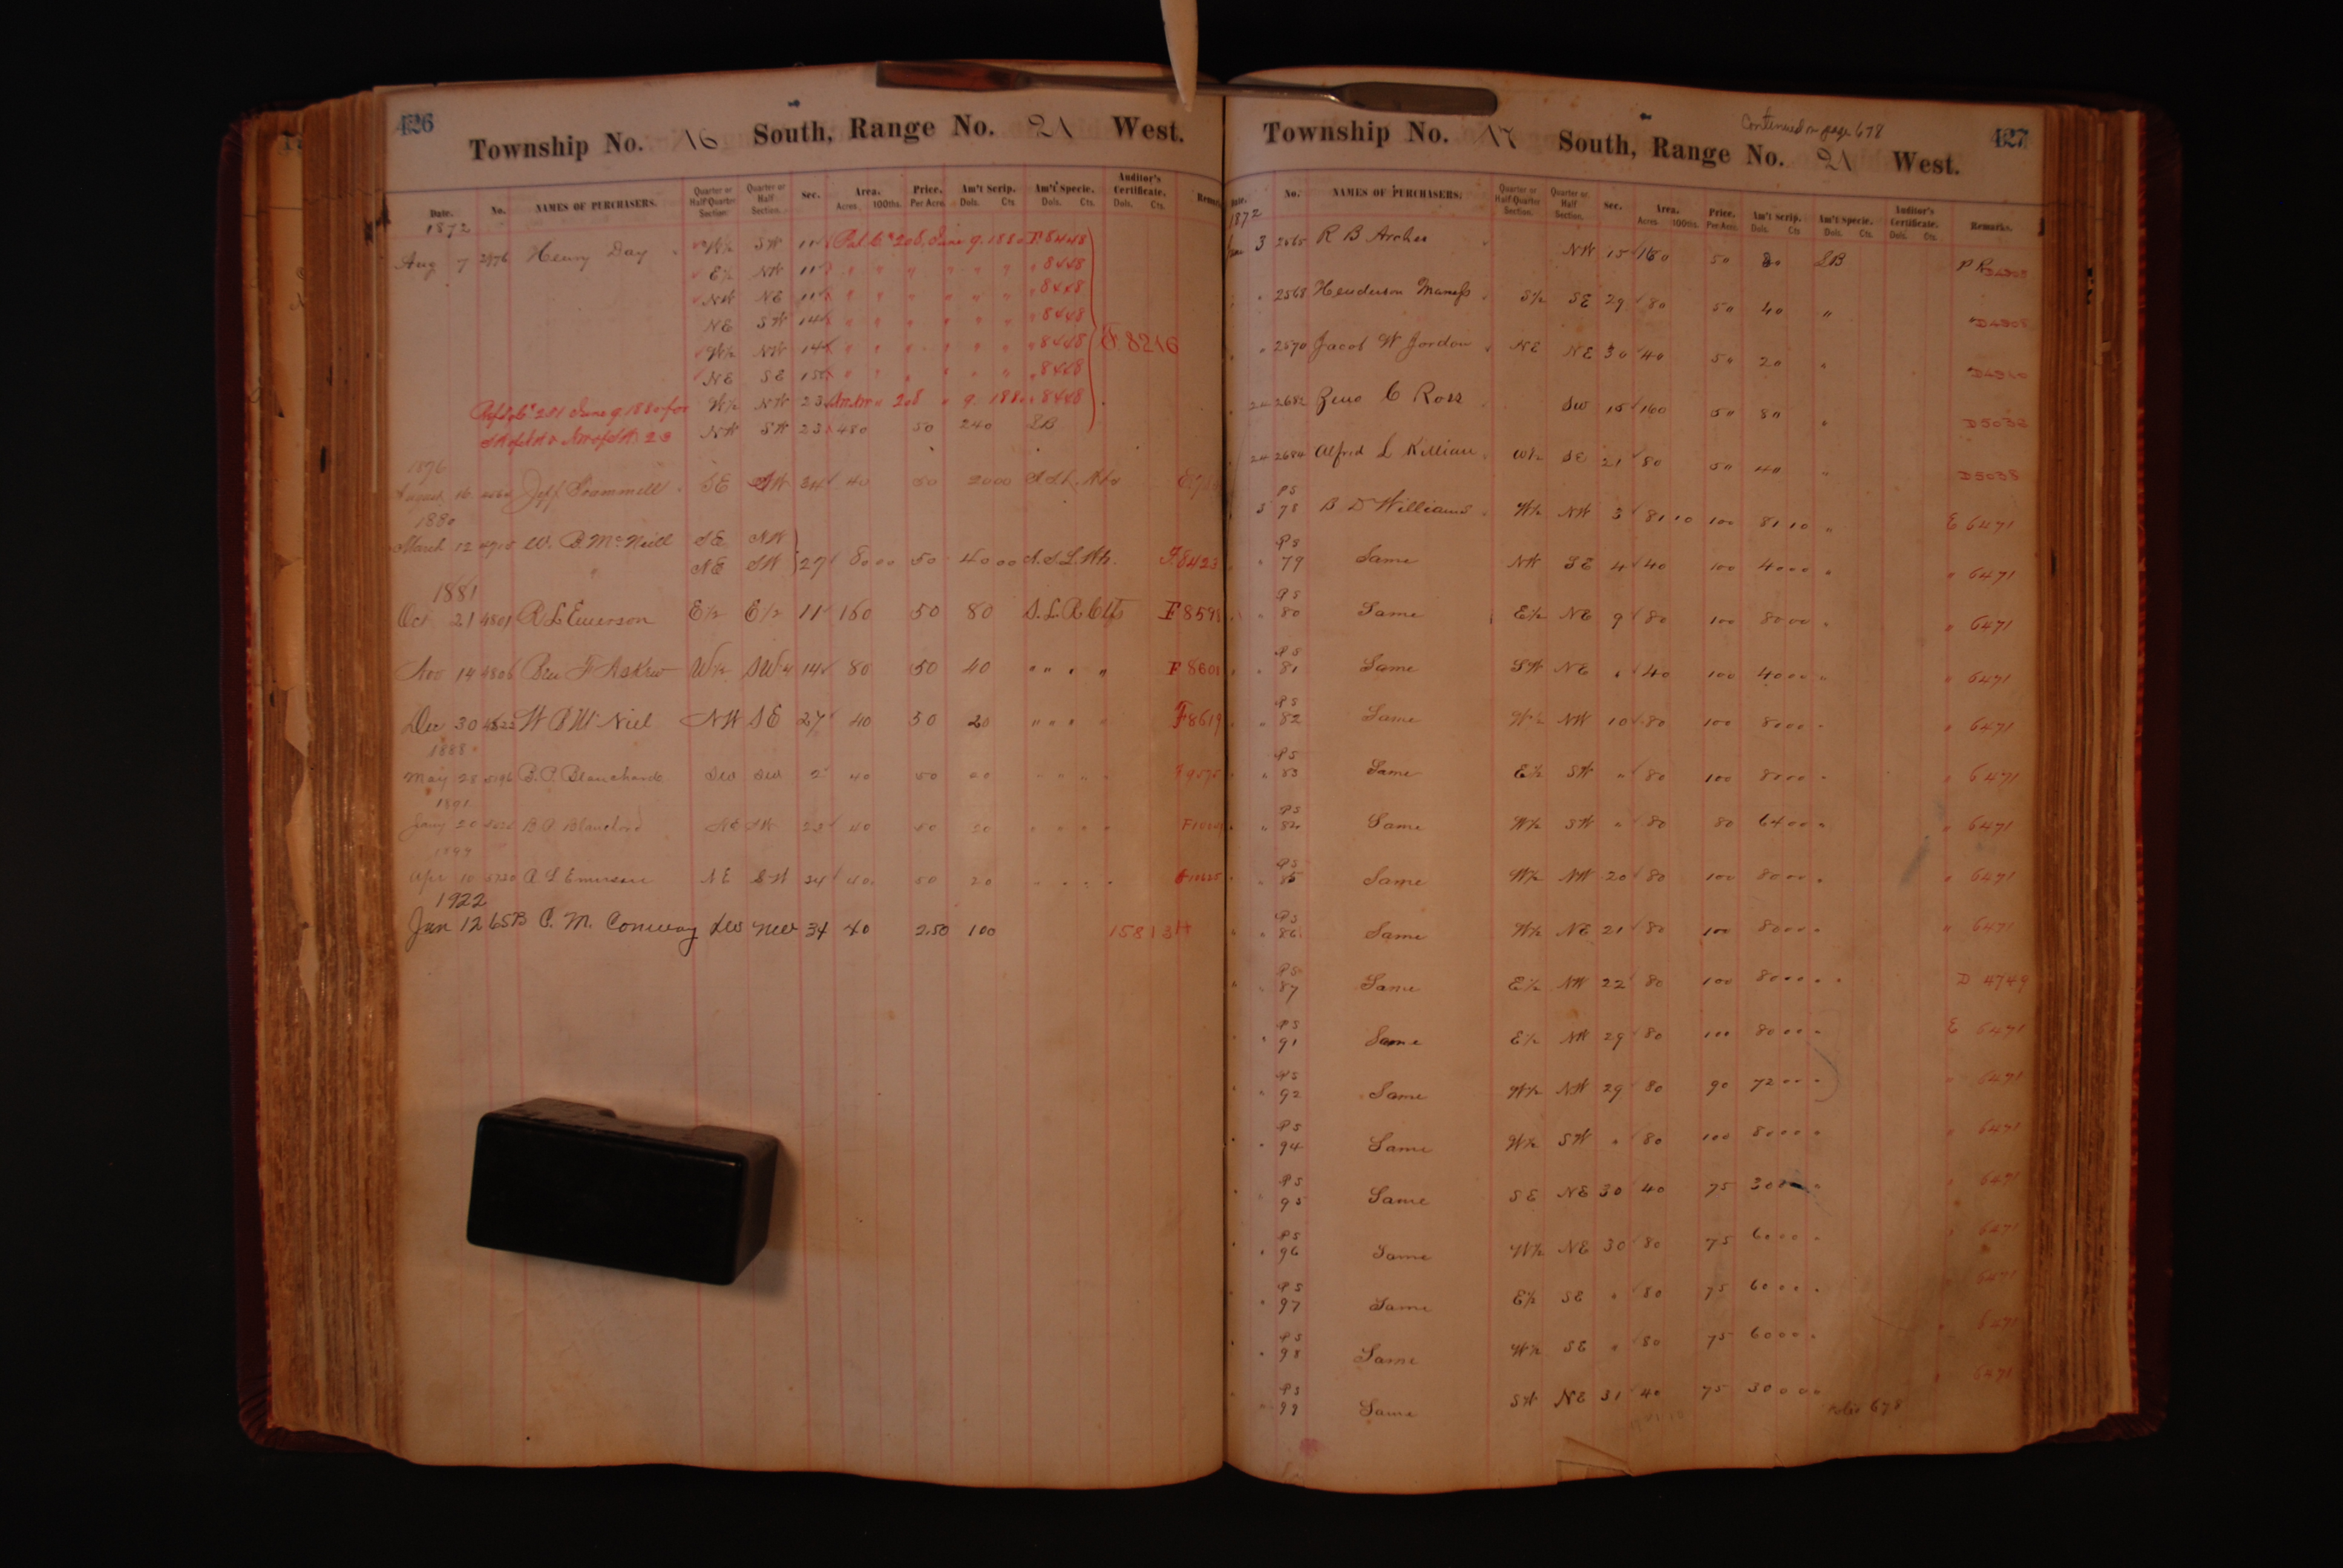 426
Township No. 16 South, Range No. 21 West.
Date. No. NAMES OF PURCHASERS. Quarter or Half Quarter Section. Quarter or Half Section. Sec. Area. Acres 100ths. Price. Per Acre. Am't Scrip. Dols. Cts Am't Specie. Dols. Cts. Auditor's Certificate. Dols. Cts.
1872
Aug 7 2976 Henry Day W½ SW 11 208, June 9. 1880 F 8448
E½ NW 11 " " " " " " " 8448
NW NE 11 " " " " " " " 8448
NE SW 14 " " " " " " " 8448
W½ NW 14 " " " " " " " 8448 F 8216
NE SE 15 " " " " " " " 8448
201 June 9. 1880 for W½ NW 23 208 " 9. 1880 " 8448
NW SW 23 480 50 240 SB
1876
August 16 Jeff Trammell SE SW 34 40 50 2000
1880
March 12 4710 W. B. McNeill SE NW
" NE SW 27 80 00 50 40 00 F. 8423
1881
Oct 21 4801 R L Emerson E½ E½ 11 160 50 80 S. L. R. Ctfs F 8598
Nov 14 4806 Ben F Askew W½ SW¼ 14 80 50 40 " " " " F 8601
Dec 30 4822 W B McNiel NW SE 27 40 50 20 " " " " F 8619
1888
May 28 5196 B. P. Blanchard SW SW 2 40 50 20 " " " " F 9575
1891
Jany 20 B. P. Blanchard NE SW 23 40 50 20 " " " "
1899
Apr 10 5720 R L Emerson NE SW 34 40 50 20 " " " "
1922
Jan 12 65B C. M. Conway SW NW 34 40 2.50 100 15813H
Continued on page 678
427
Township No. 17 South, Range No. 21 West.
Date. No. NAMES OF PURCHASERS. Quarter or Half Quarter Section. Quarter or Half Section. Sec. Area. Acres 100ths. Price. Per Acre. Am't Scrip. Dols. Cts Am't Specie. Dols. Cts. Auditor's Certificate. Dols. Cts. Remarks.
1872
June 3 2565 R B Archer NW 15 160 50 80 SB
" " 2568 Henderson Maness S½ SE 29 80 50 40 " "D4308
" " 2570 Jacob W Jordon NE NE 30 40 50 20 " "D4310
" 24 2682 Zeno C Ross SW 15 160 50 80 " D5032
" 24 2684 Alfred L Killian W½ SE 21 80 50 40 " D5038
PS
3 78 B D Williams W½ NW 3 81 10 100 81 10 " E 6471
PS
" 79 Same NW SE 4 40 100 40 00 " " 6471
PS
" 80 Same E½ NE 9 80 100 80 00 " " 6471
PS
" 81 Same SW NE " 40 100 40 00 " " 6471
PS
" 82 Same W½ NW 10 80 100 80 00 " " 6471
PS
" 83 Same E½ SW " 80 100 80 00 " " 6471
PS
" 84 Same W½ SW " 80 80 64 00 " " 6471
PS
" 85 Same W½ NW 20 80 100 80 00 " " 6471
PS
" 86 Same W½ NE 21 80 100 80 00 " " 6471
PS
" 87 Same E½ NW 22 80 100 80 00 " D 4749
PS
" 91 Same E½ NW 29 80 100 80 00 " E 6471
PS
" 92 Same W½ NW 29 80 90 72 00 " " 6471
PS
" 94 Same W½ SW " 80 100 80 00 " " 6471
PS
" 95 Same SE NE 30 40 75 30 00 " " 6471
PS
" 96 Same W½ NE 30 80 75 60 00 " " 6471
PS
" 97 Same E½ SE " 80 75 60 00 " " 6471
PS
" 98 Same W½ SE " 80 75 60 00 " " 6471
PS
" 99 Same SW NE 31 40 75 30 00 " " 6471
678